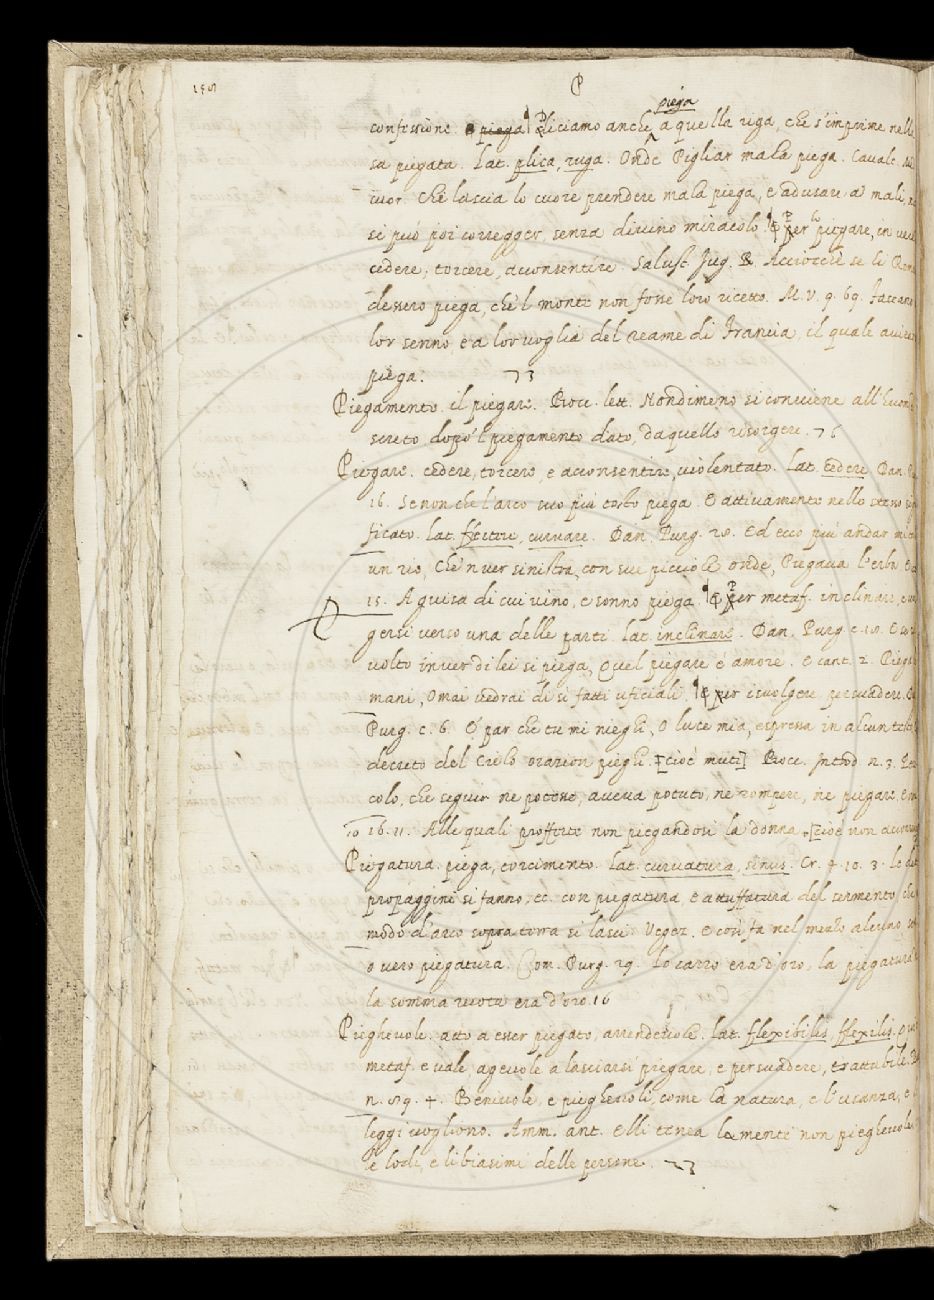 P
piega
confessione. piega Diciamo anche a quella riga, che s'imprime nelle
sa piegata. Lat. plica, ruga. Onde Pigliar mala piega. Cavalc.
cuor. Che lascia lo cuore prendere mala piega, e adusare a mali,
si può poi corregger, senza divino miracolo. Per lo piegare, in vece
cedere, torcere, acconsentire. Salust. Jug. R. Acciocchè se li Rom
dessero piega, che'l monte non fosse loro ricetto. M. V. 9. 69. Faceano
lor senno e a lor voglia del reame di Francia, il quale avien
piega. 73
Piegamento. il piegare. Bocc. lett. Nondimeno si conviene all'huom
screto dopo'l piegamento dato, da quello risorgere. 76
Piegare. cedere, torcere, e acconsentire, violentato. Lat. cedere. Dan.
16. Se non che l'arco suo più tosto piega. E attivamente nello stesso
ficato. Lat. flectere, curvare. Dan. Purg. 28. Ed ecco più andar mi
un rio, Che n'ver sinistra, con sue picciole onde, Piegava l'erba
15. A guisa di cui vino, e sonno piega. Per metaf. inclinare,
gersi verso una delle parti. Lat. inclinare. Dan. Purg. c. 18. E se
volto inver di lei si piega, Quel piegare è amore. E cant. 2. Piega
mani, Omai vedrai di sì fatti uficiali. per isvolgere, persuadere.
Purg. c. 6. E' par che tu mi nieghi, O luce mia, espressa in alcun testo
decreto del Cielo orazion pieghi. [cioè muti] Bocc. Introd. n. 3.
colo, che seguir ne potesse, aveva potuto, nè rompere, nè piegare,
16. 11. Alle quali profferte non piegandosi la donna. [cioè non
Piegatura. piega, torcimento. Lat. curvatura, sinus. Cr. 4. 10. 3. le
propaggini si fanno, ec. con piegatura, e attuffatura del sermento, che
modo d'arco sopra terra si lasci. Vegez. E così fa nel mezzo alcuno
o vero piegatura. Com. Purg. 29. Lo carro era d'oro, la piegatura
la somma ruota era d'oro. 16
Pieghevole. atto a esser piegato, arrendevole. Lat. flexibilis, flexilis.
metaf. e vale, agevole a lasciarsi piegare, e persuadere, trattabile.
n. 89. 4. Benivole, e pieghevoli, come la natura, e l'usanza, e
leggi vogliono. Amm. ant. Elli tenea la mente non pieghevole
le lode, e li biasimi delle persone. 73